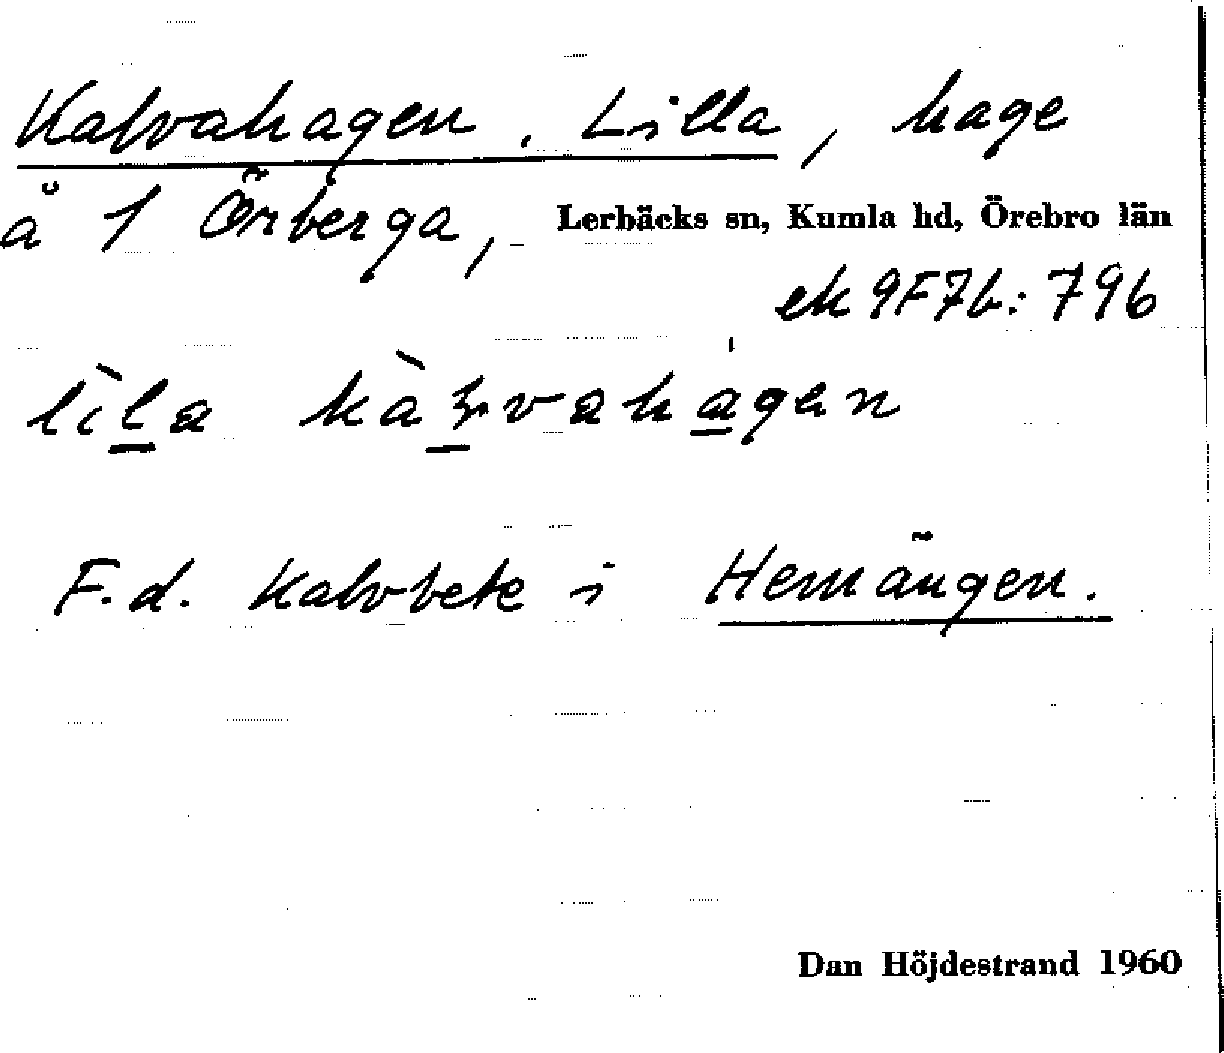 Kalvahagen, Lilla, hage
å 1 Örberga, Lerbäcks sn, Kumla hd, Örebro län
ek 9F7b: 796
F.d. kalvbete i Hemängen.
Dan Höjdestrand 1960